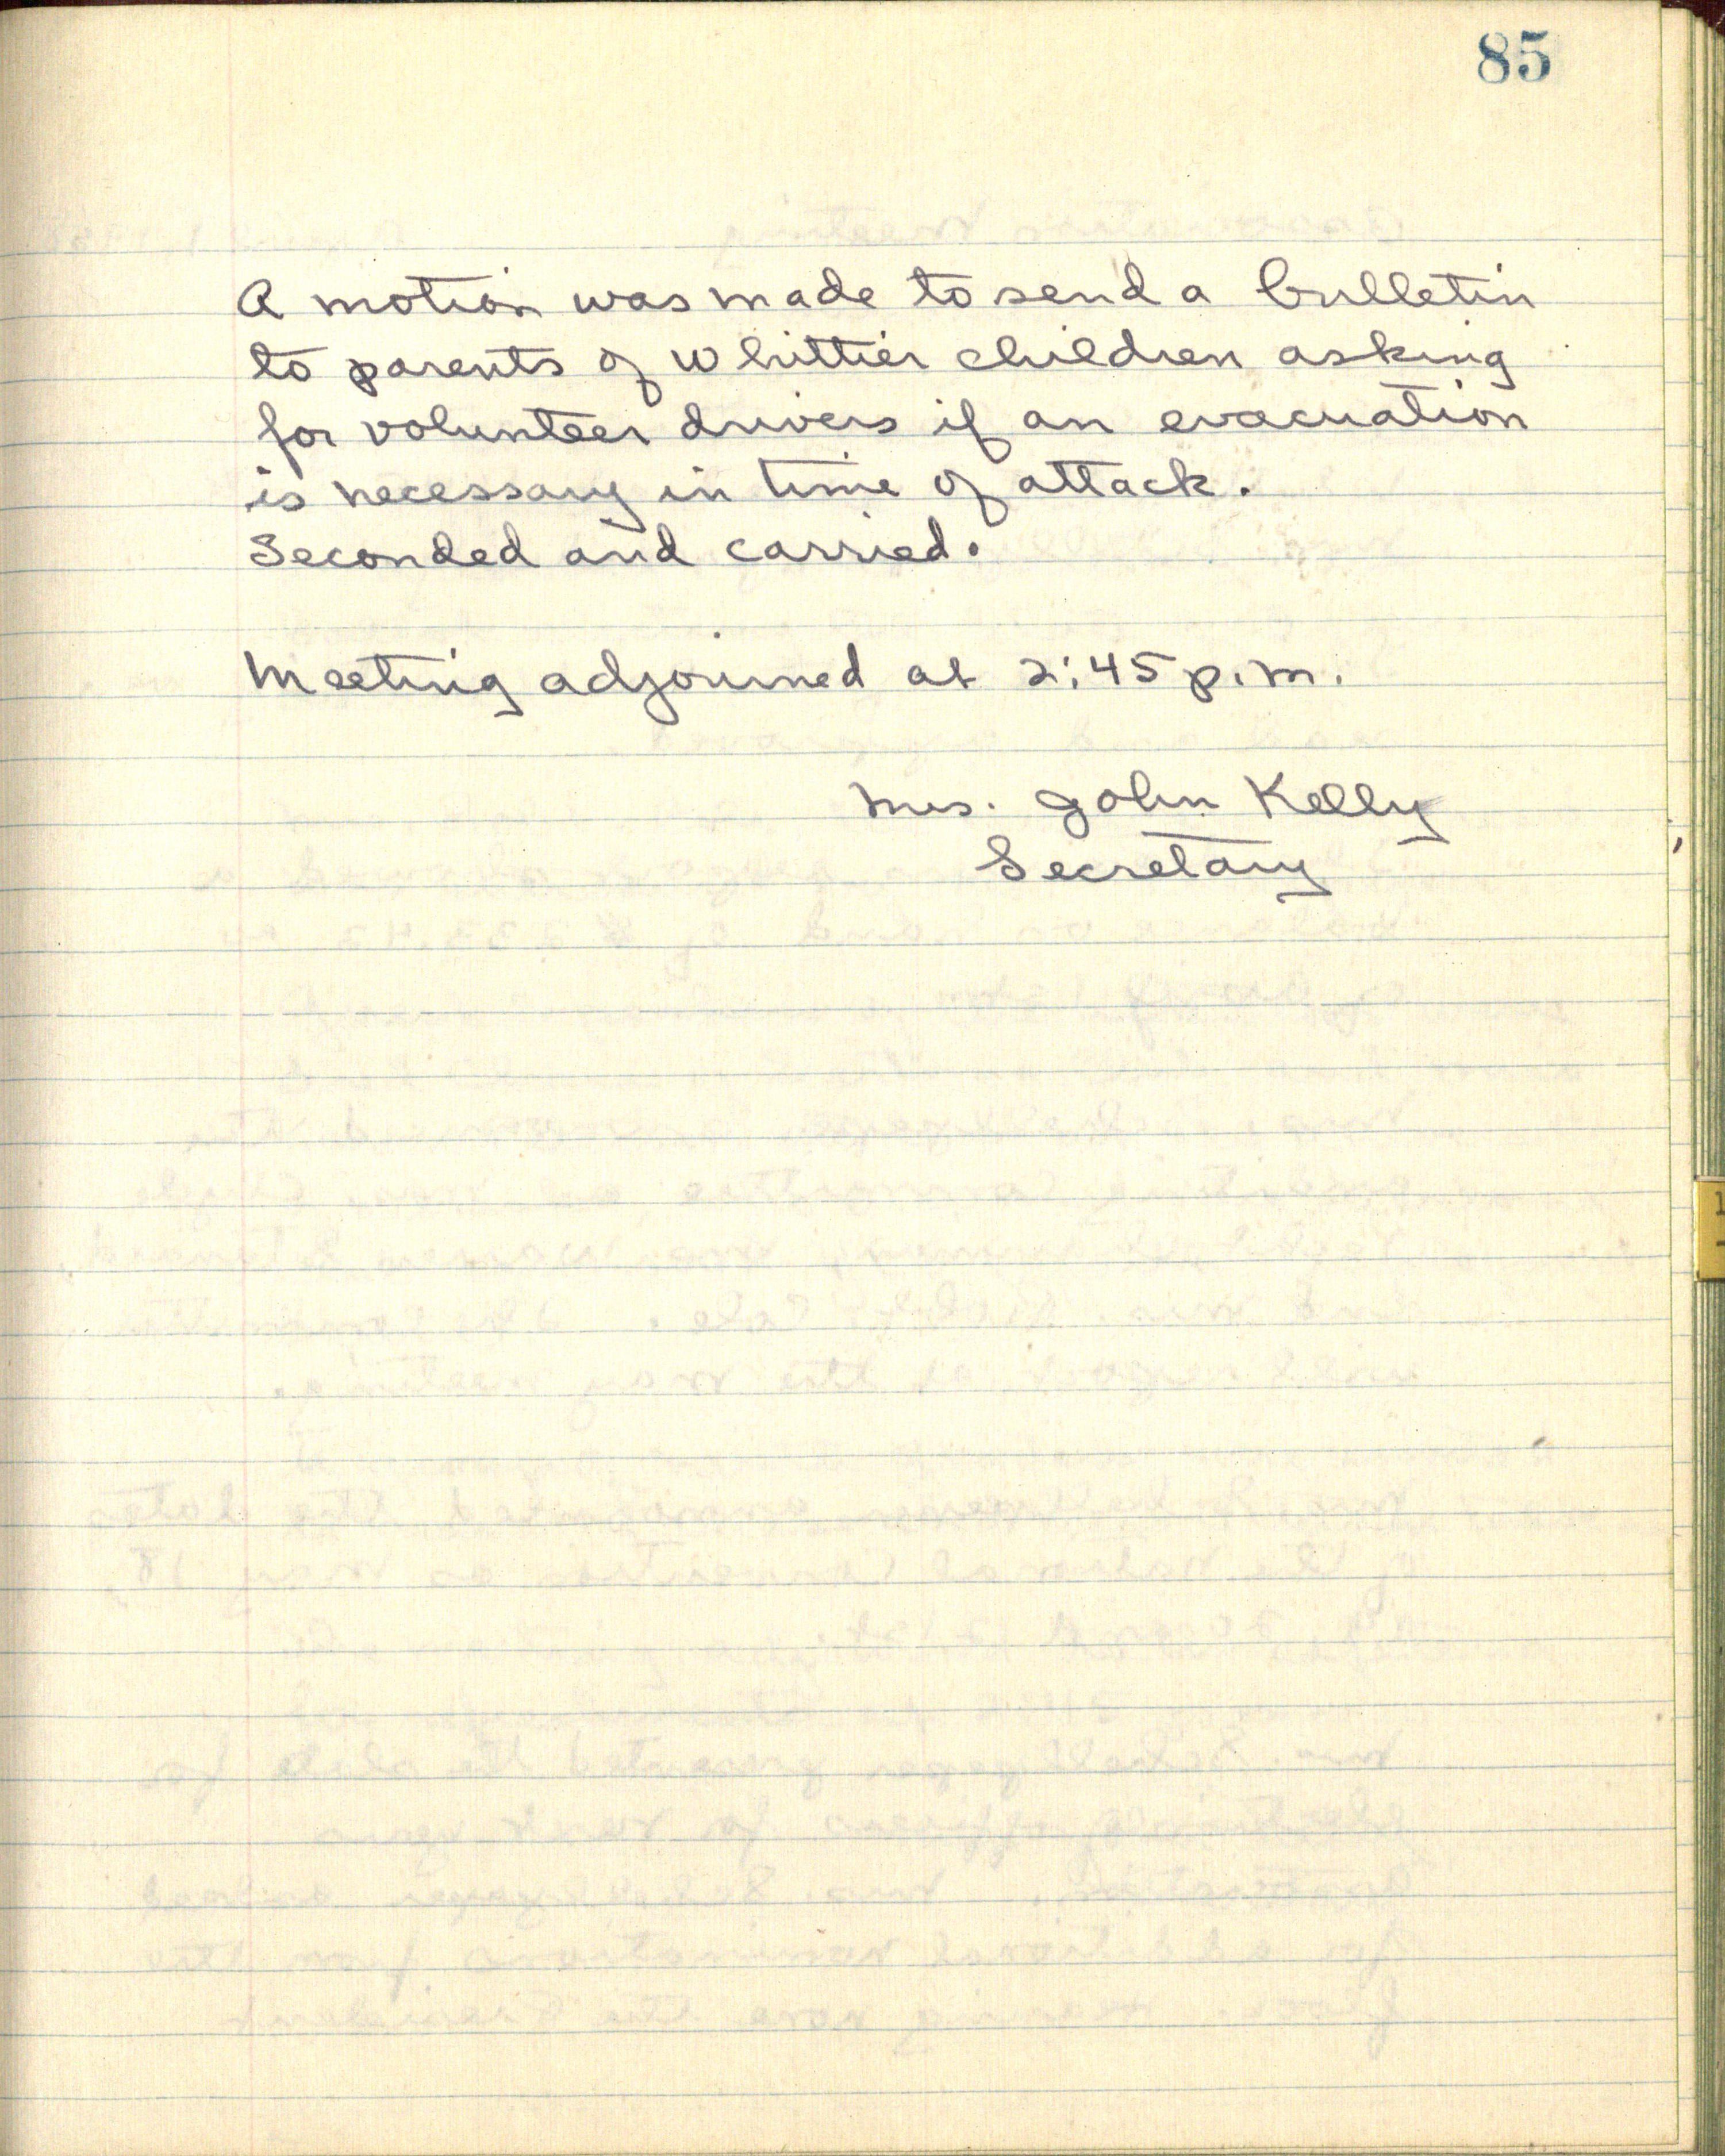 85
A motion was made to send a bulletin
to parents of Whittier children asking
for volunteer drivers if an evacuation
is necessary in time of attack.
Seconded and carried.
Meeting adjourned at 2:45 p.m.
Mrs. John Kelly
Secretary